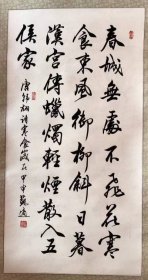 春城無處不飛花寒
食東風御柳斜日暮
漢宮傳蠟燭輕煙散入五
侯家
唐韓翃詩寒食
甲申